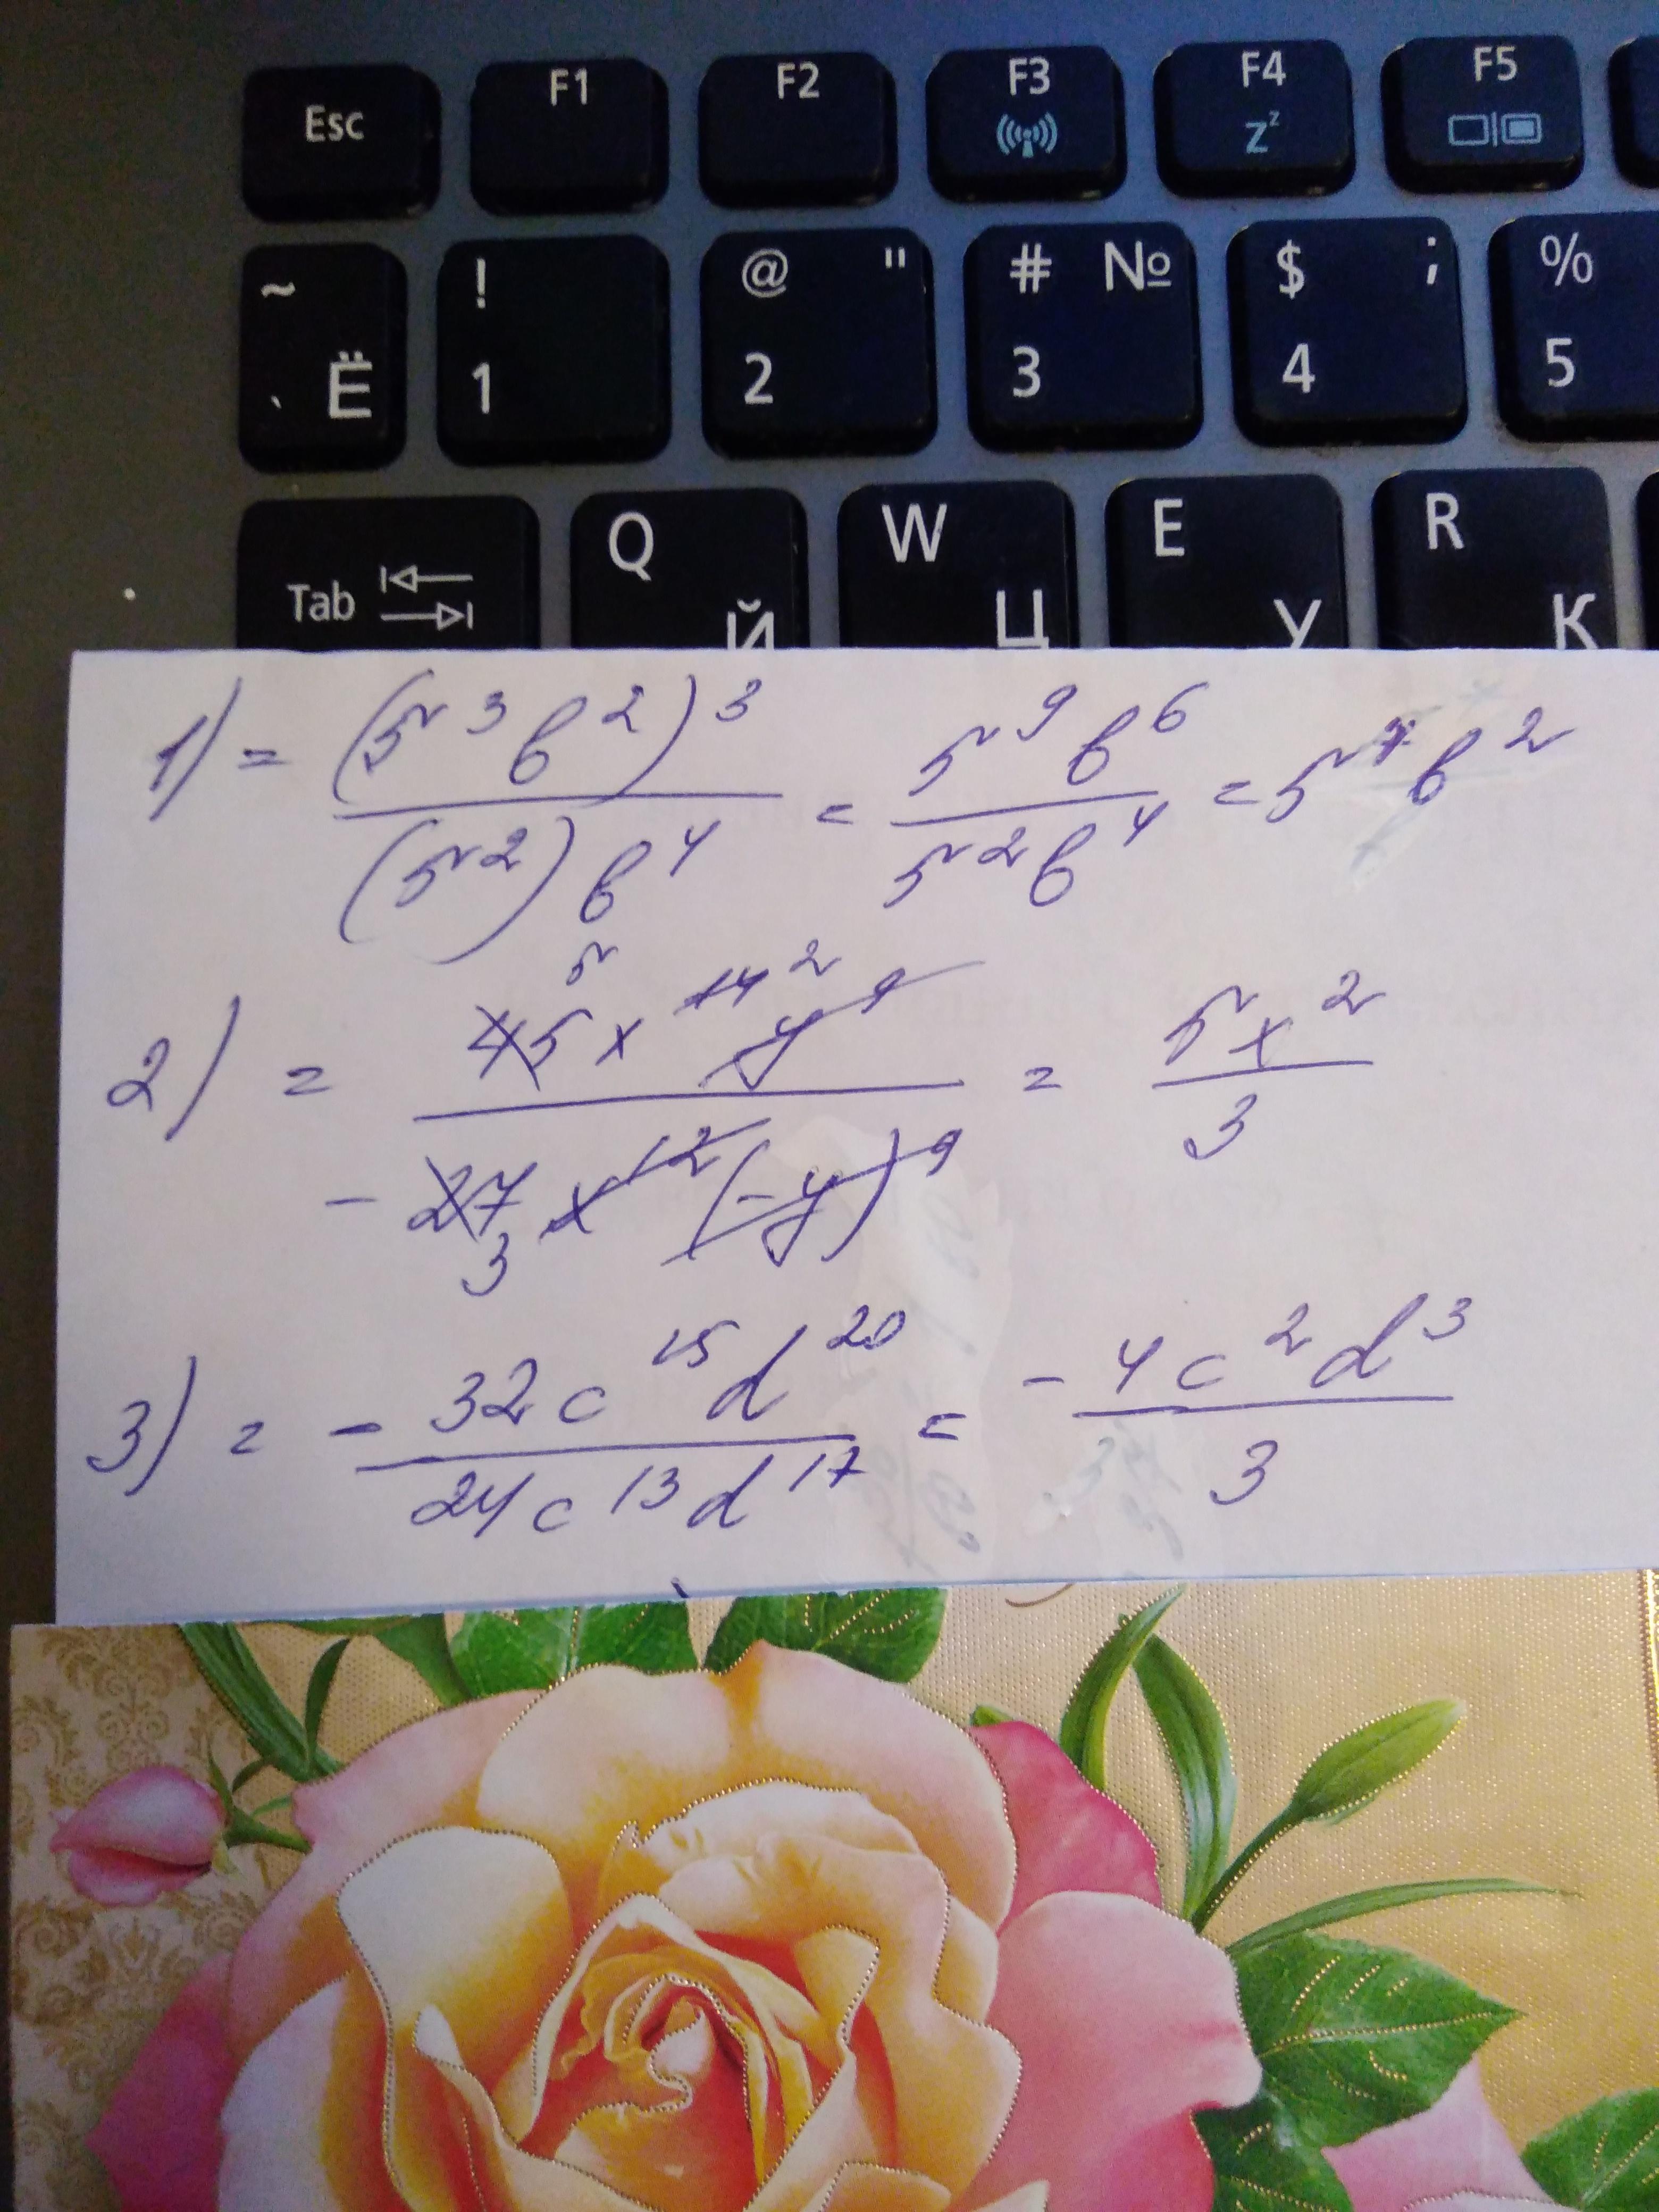 Esc F1 F2 F3 F4 Zz F5
~ ` Ё ! 1 @ " 2 # № 3 $ ; 4 % 5
Tab Q Й W Ц E У R К
1) = (5³b²)³ / (5²)b⁴ = 5⁹b⁶ / 5²b⁴ = 5⁷b²
2) = 45⁵x¹⁴ ²y⁹ / -27₃x¹²(-y)⁹ = 5x² / 3
3) = - 32c¹⁵d²⁰ / 24c¹³d¹⁷ = - 4c²d³ / 3